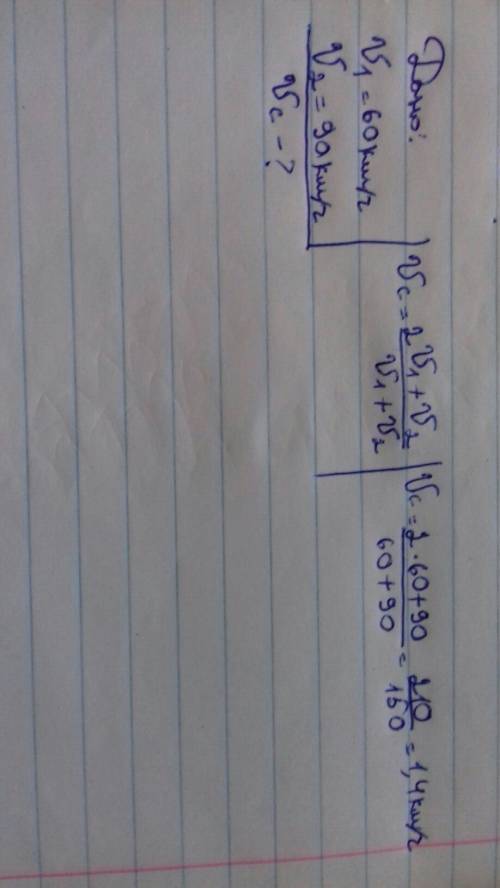 Дано:
v₁ = 60 км/ч
v₂ = 90 км/ч
v_c - ?
v_c = (2v₁ + v₂)/(v₁ + v₂)
v_c = (2 · 60 + 90)/(60 + 90) = 210/150 = 1,4 км/ч